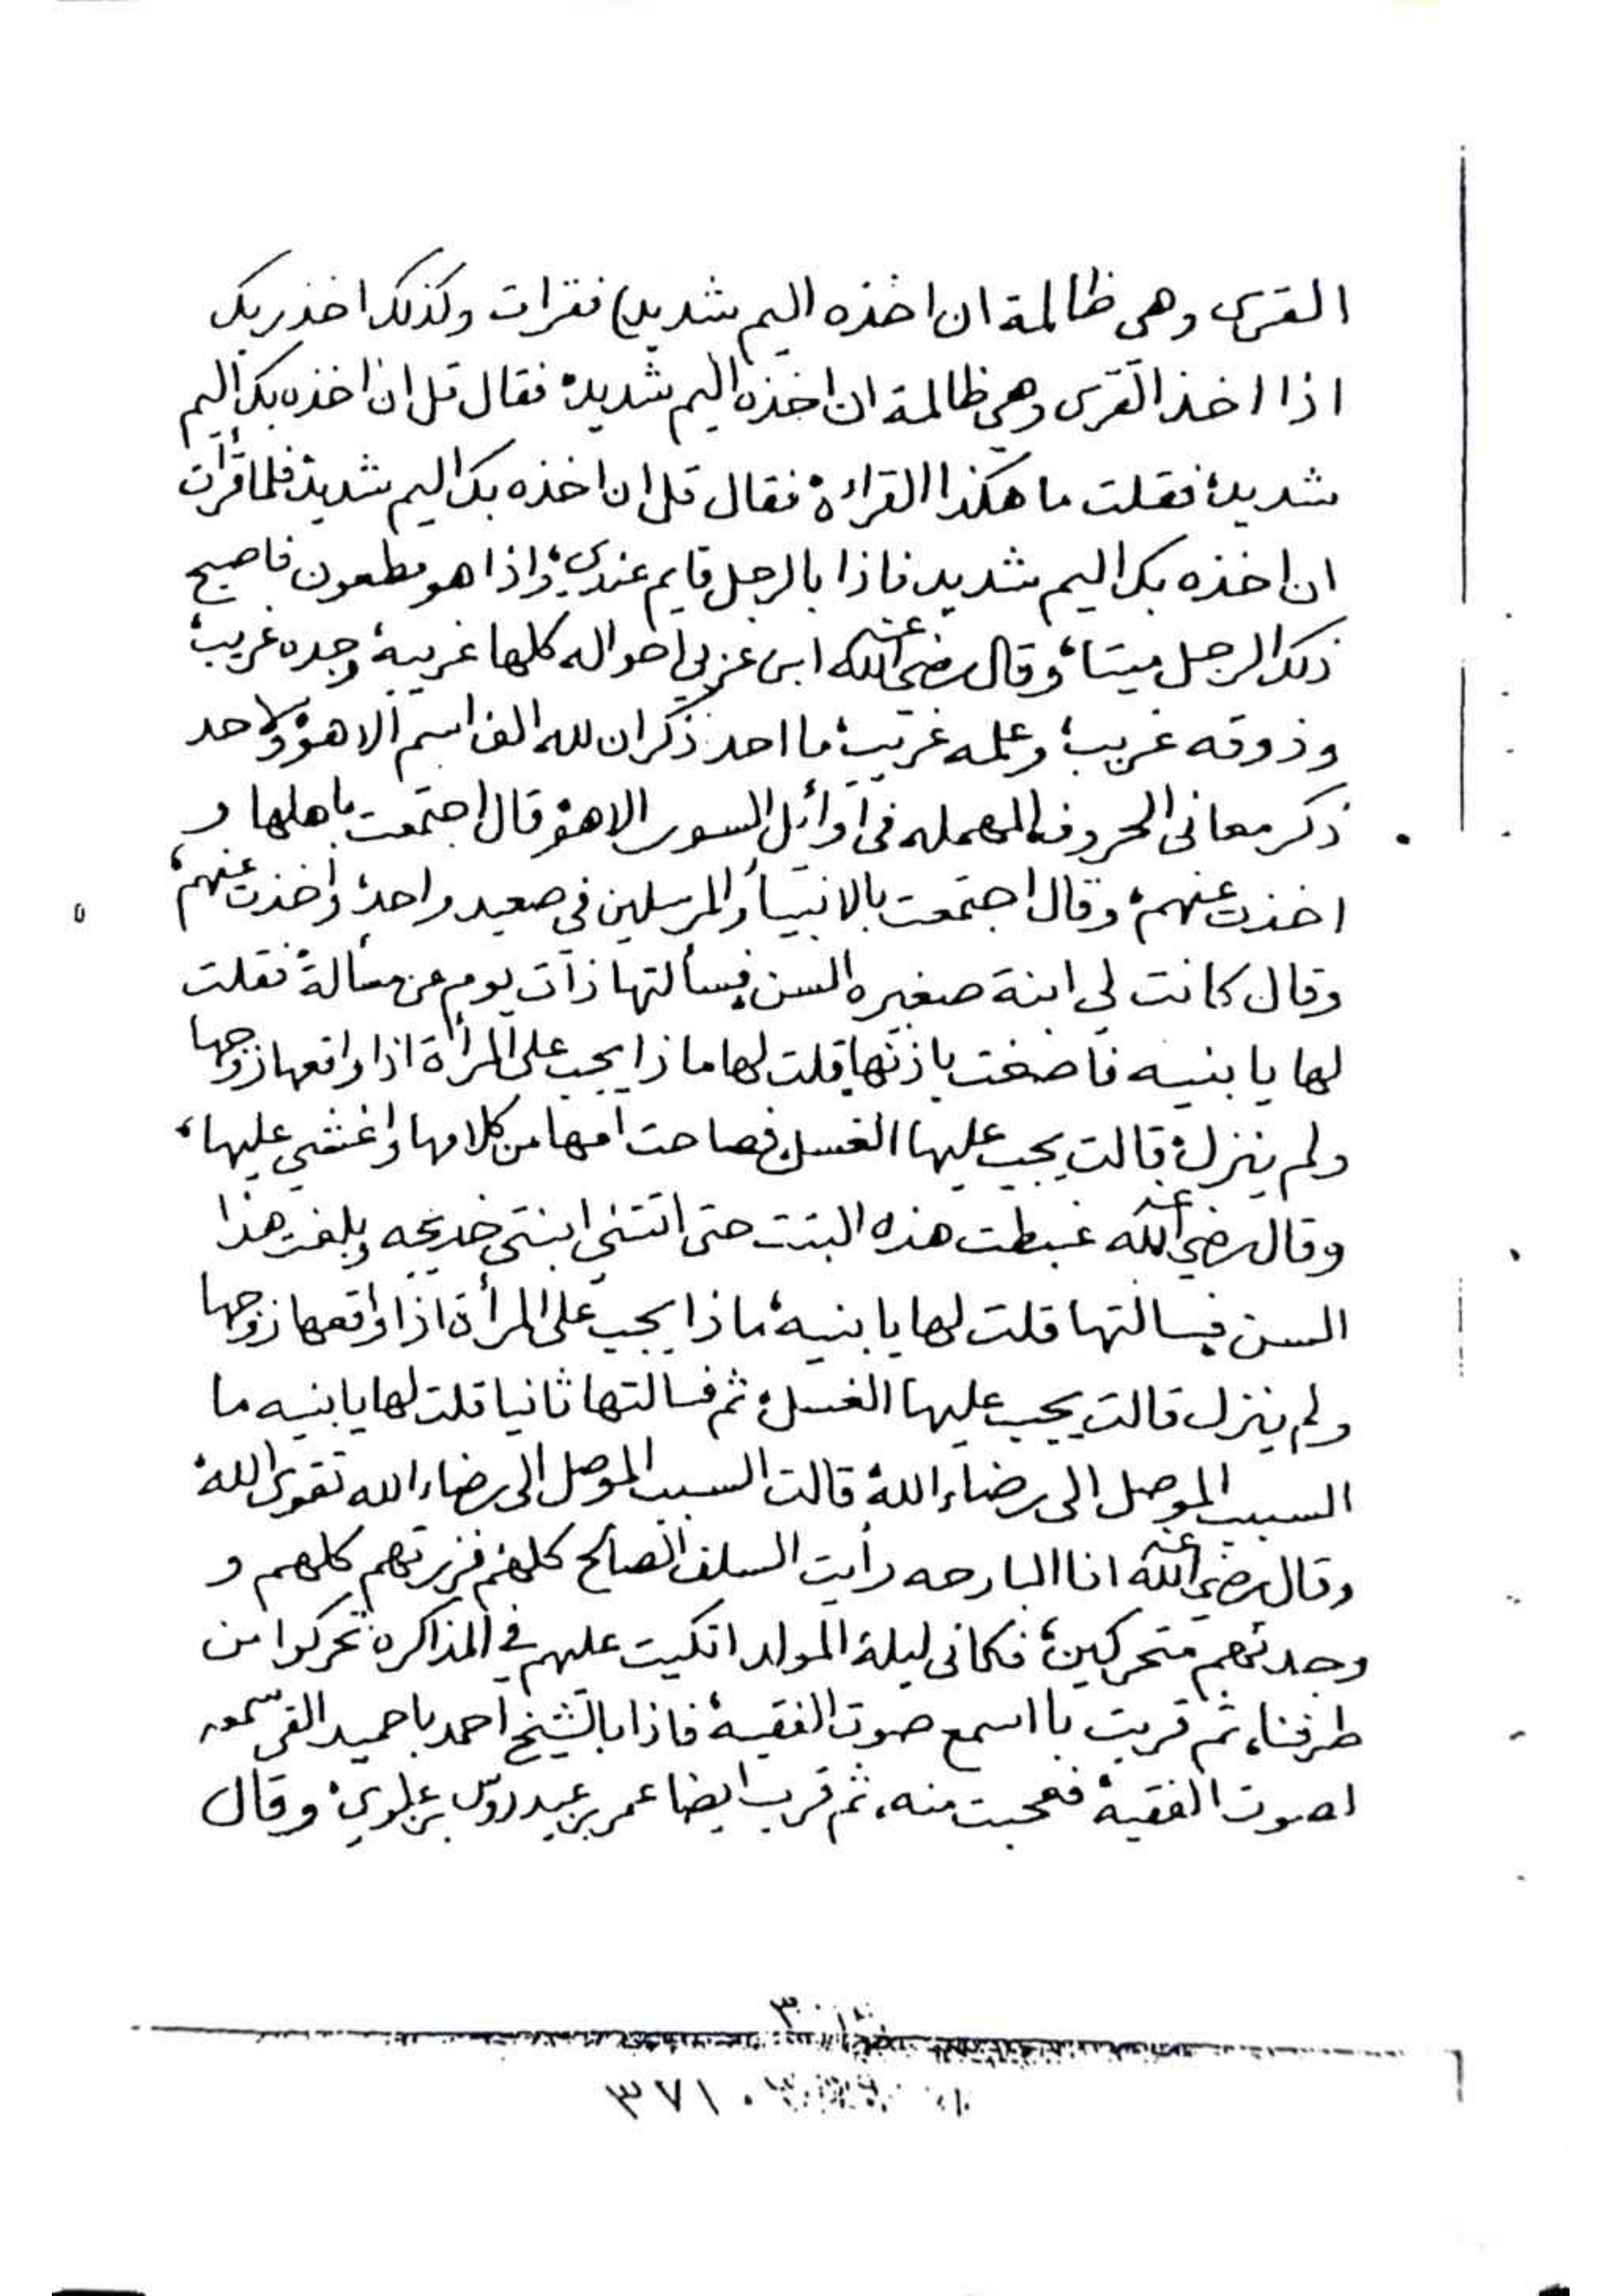 القرى وهى ظالمة ان اخذه اليم شديد) فقرات وكذلك اخذ ربك
اذا اخذ القرى وهى ظالمة ان اخذه اليم شديد، فقال قل ان اخذه بك اليم
شديد، فقلت ما هكذا القراءة، فقال قل ان اخذه بك اليم شديد، فلما قرأت
ان اخذه بك اليم شديد فاذا بالرجل قايم عندي، واذا هو مطعون فاصبح
ذلك الرجل ميتا، وقال رضي الله عنه ابن عربي احواله كلها غريبة، وجده غريب،
وذوقه غريب، وعلمه غريب، ما احد ذكر ان لله الف اسم الا هو، ولا احد
ذكر معانى الحروف المهمله فى أوائل السور الا هو، قال اجتمعت باهلها و
اخذت عنهم، وقال اجتمعت بالانبيأ والمرسلين فى صعيد واحد، واخذت عنهم،
وقال كانت لي ابنة صغيره السن فسألتها ذات يوم عن مسألة، فقلت
لها يا بنيه فاصغت باذنها، قلت لها ماذا يجب على المرأة اذا واقعها زوجها
ولم ينزل، قالت يجب عليها الغسل، فصاحت امها من كلامها واغشي عليها،
وقال رضي الله عنه غبطت هذه البنت حتى اتتني ابنتي خديجه وبلغت هذا
السن فسالتها قلت لها يا بنيه، ماذا يجب على المرأة اذا واقعها زوجها
ولم ينزل قالت يجب عليها الغسل، ثم فسالتها ثانيا قلت لها يا بنيه ما
السبب الموصل الى رضاء الله، قالت السبب الموصل الى رضاء الله تقوى الله،
وقال رضي الله عنه انا البارحه رأيت السلف الصالح كلهم، فزرتهم كلهم و
وجدتهم متحركين، فكانى ليلة المولد اتكيت عليهم في المذاكره، تحركوا من
طرفنا، ثم قربت با اسمع صوت الفقيه، فاذا بالشيخ احمد باحميد القى سمعه
لصوت الفقيه، فعجبت منه، ثم قرب ايضا عمر بن عيدروس بن علوي، وقال
٣٧١